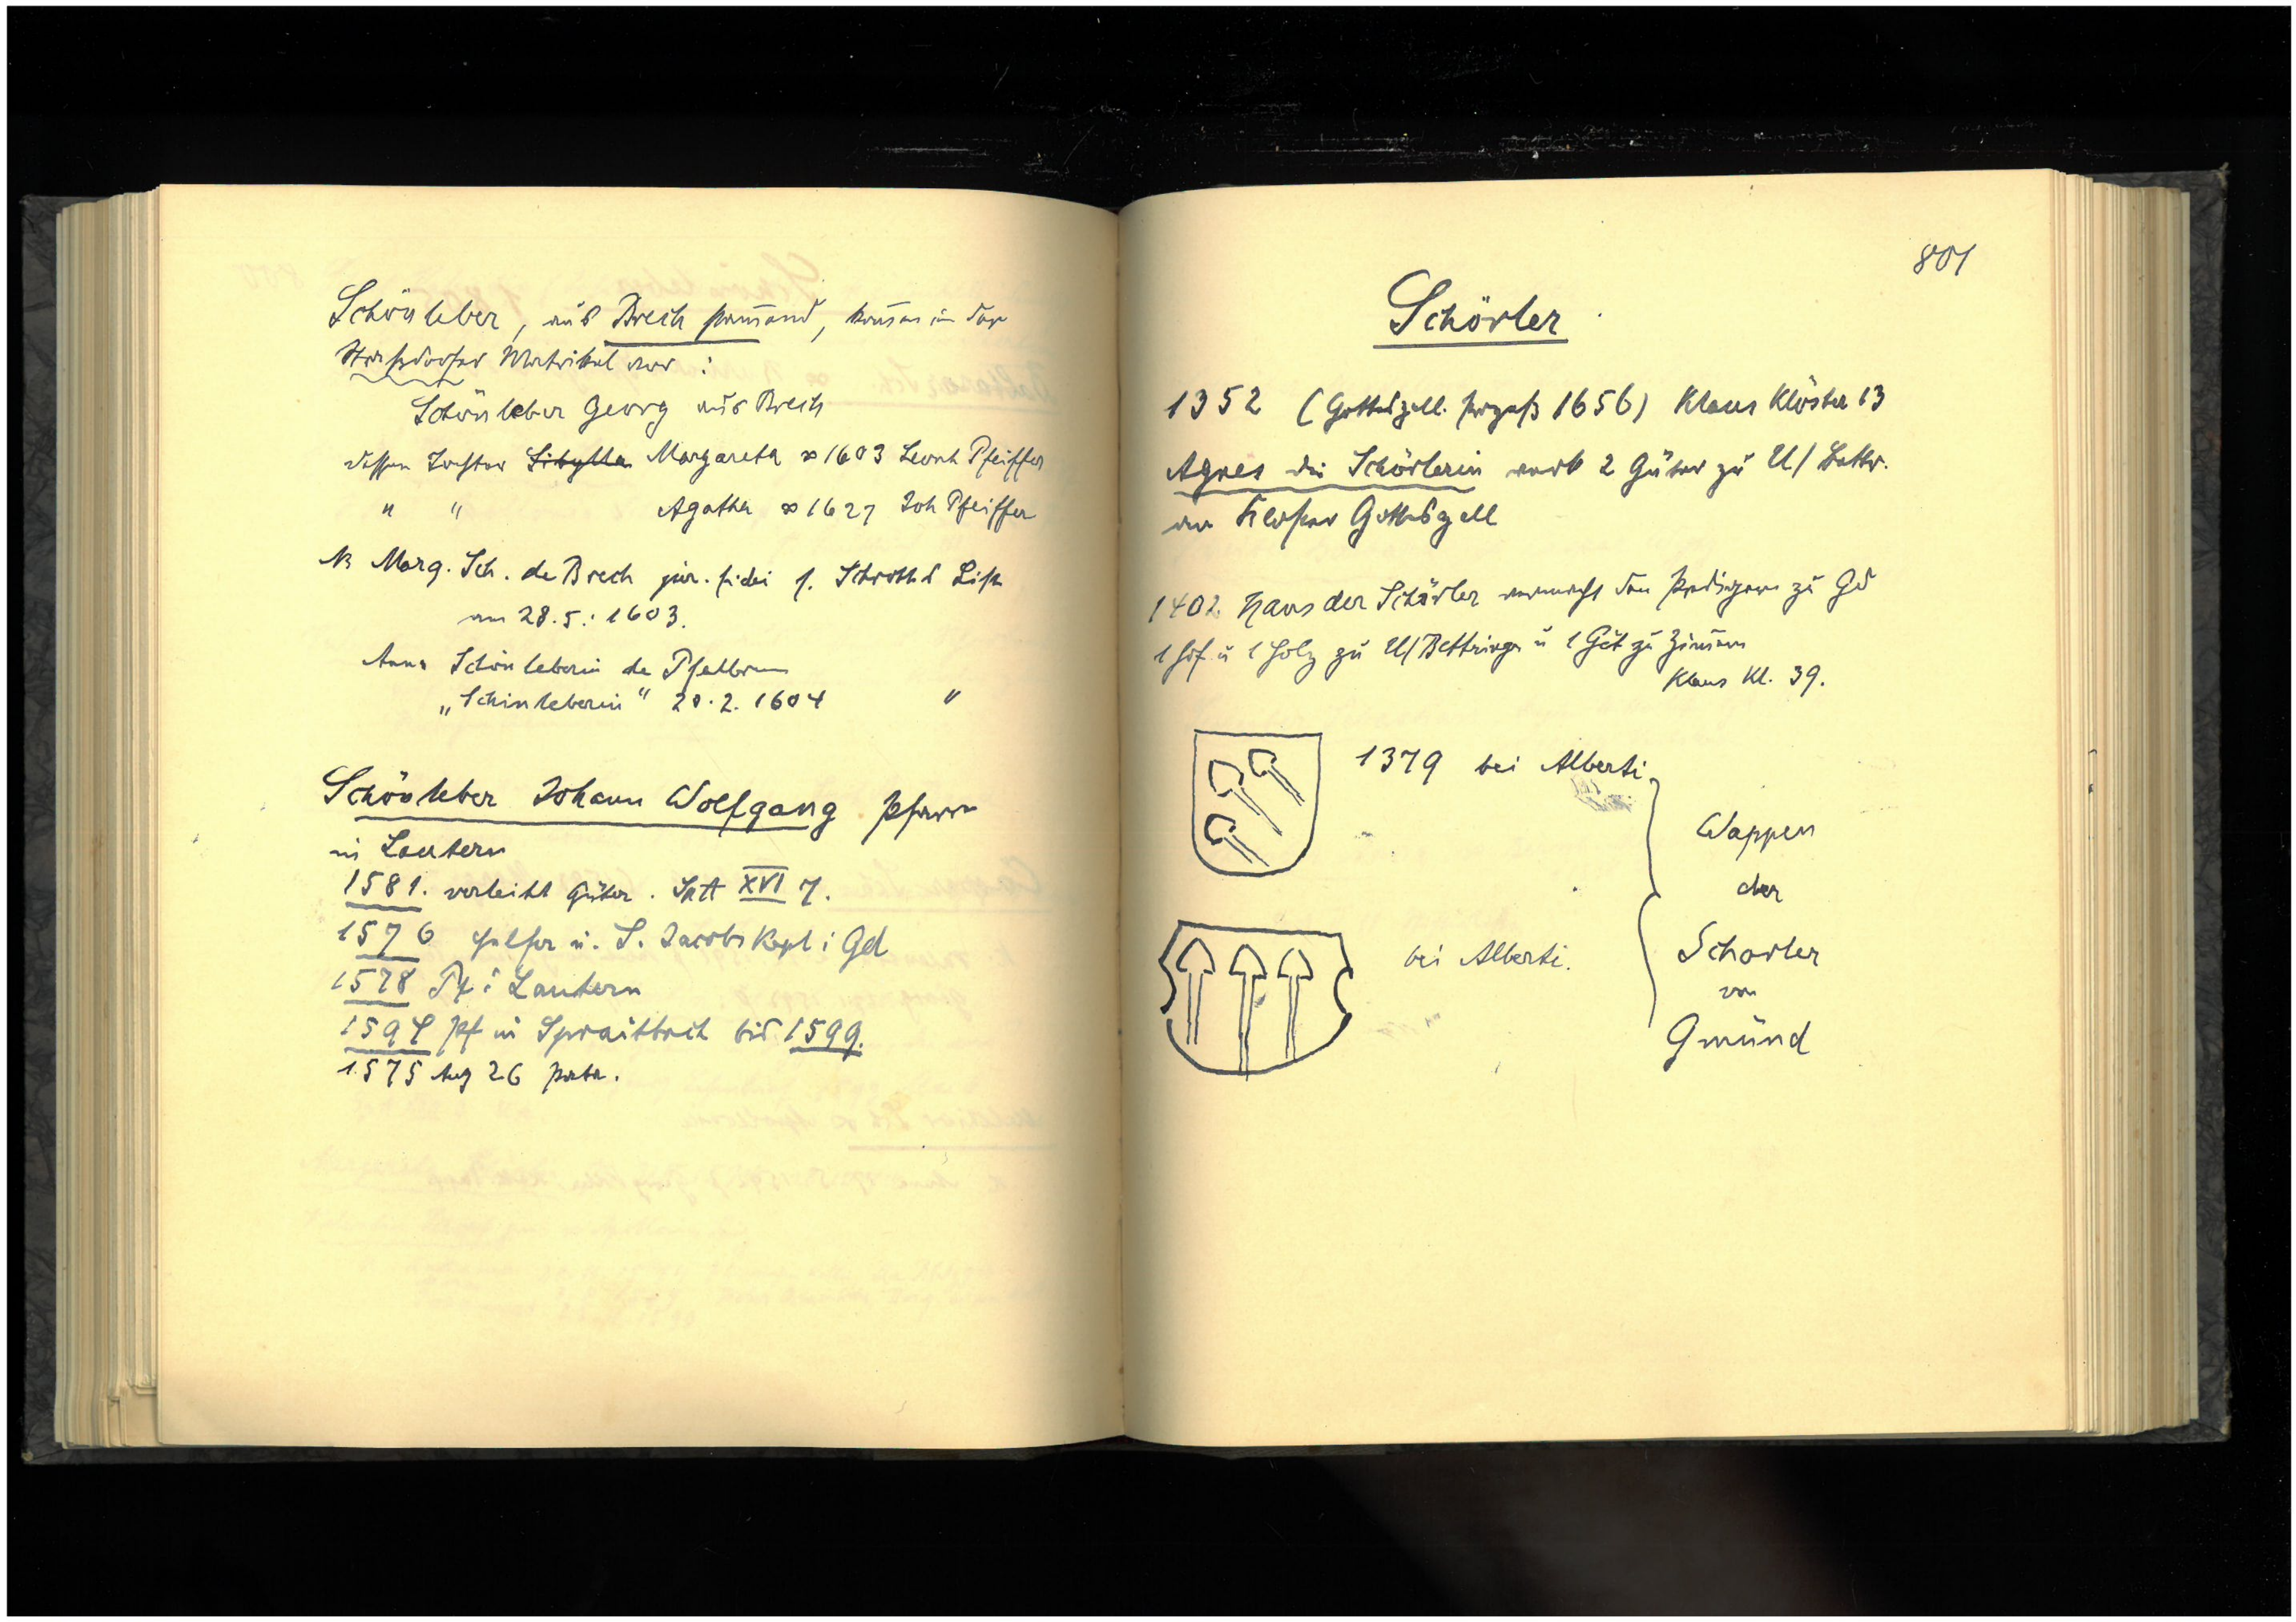 Schönleber, aus Brech stam̄end, kom̄en in der
Straßdorfer Matrikel vor:
Schönleber Georg aus Brech
dessen Tochter Sibylla Margareta ∞ 1603 Leonh Pfeiffer
" " Agatha ∞ 1627 Joh Pfeiffer
NB Marg. Sch. de Brech jur. fidei s. Schotts Liste
am 28.5.1603.
Anna Schönleberin de Pfalbron
„Schinleberin“ 20.2.1604 "
Schönleber Johann Wolfgang Pfarrer
in Lautern
1581. verleiht Güter. XVI 7.
1576 Helfer u. S. Jacobs Kapl i Gd
1578 Pf i Lautern
1594 Pf in Spraitbach bis 1599.
1575 Aug 26
801
Schörler
1352 (Gotteszell. 1656) Klaus Klöster 13
Agnes die Schörlerin verk 2 Güter zu U/Bettr.
an Kloster Gotteszell
1402 Hans der Schörler vermacht den Predigern zu Gd
1 Hof u 1 Holz zu U/Bettringen u 1 Gut zu Zim̄ern
Klaus Kl. 39.
1379 bei Alberti
Wappen
der
bei Alberti.
Schorler
von
Gmünd